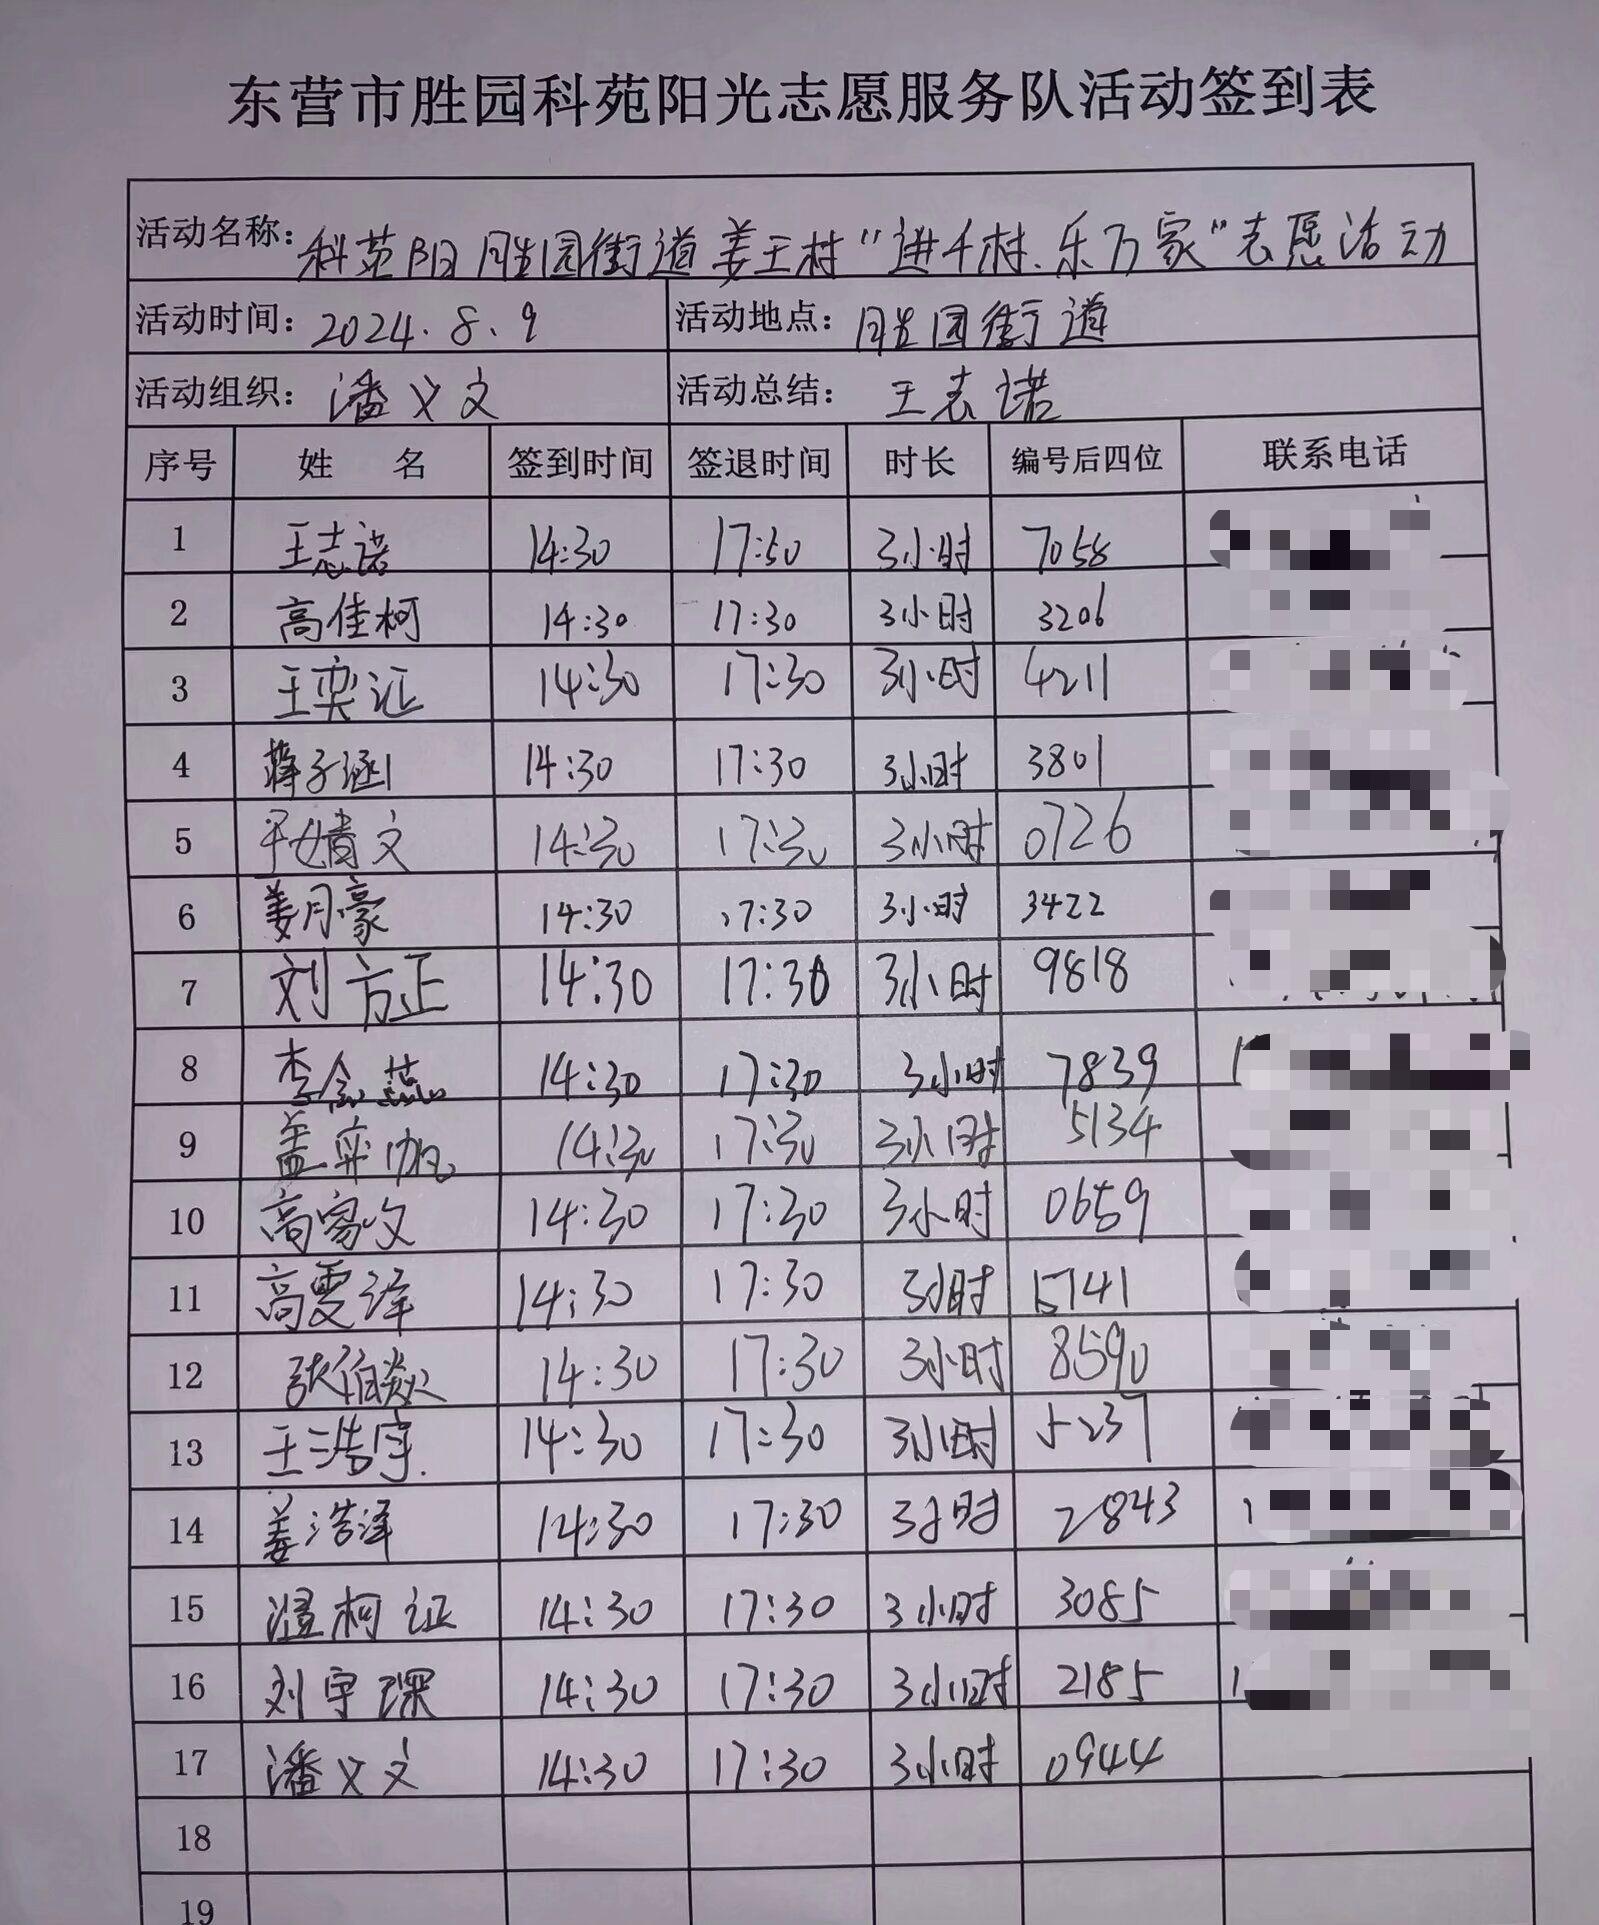 东营市胜园科苑阳光志愿服务队活动签到表
活动名称：科苑阳 胜园街道姜王村“进千村、乐万家”志愿活动
活动时间：2024.8.9 活动地点：胜园街道
活动组织：潘义文 活动总结：王志诺
序号 姓 名 签到时间 签退时间 时长 编号后四位 联系电话
1 王志诺 14:30 17:30 3小时 7058
2 高佳柯 14:30 17:30 3小时 3206
3 王奕证 14:30 17:30 3小时 4211
4 蒋子涵 14:30 17:30 3小时 3801
5 平婧文 14:30 17:30 3小时 0726
6 姜月豪 14:30 17:30 3小时 3422
7 刘方正 14:30 17:30 3小时 9818
8 李念燕 14:30 17:30 3小时 7839
9 盖弈帆 14:30 17:30 3小时 5134
10 高容文 14:30 17:30 3小时 0659
11 高雯泽 14:30 17:30 3小时 5741
12 张伯焱 14:30 17:30 3小时 8590
13 王浩宇 14:30 17:30 3小时 5237
14 姜浩泽 14:30 17:30 3小时 2843
15 温柯证 14:30 17:30 3小时 3085
16 刘宇琛 14:30 17:30 3小时 2185
17 潘义文 14:30 17:30 3小时 0944
18
19